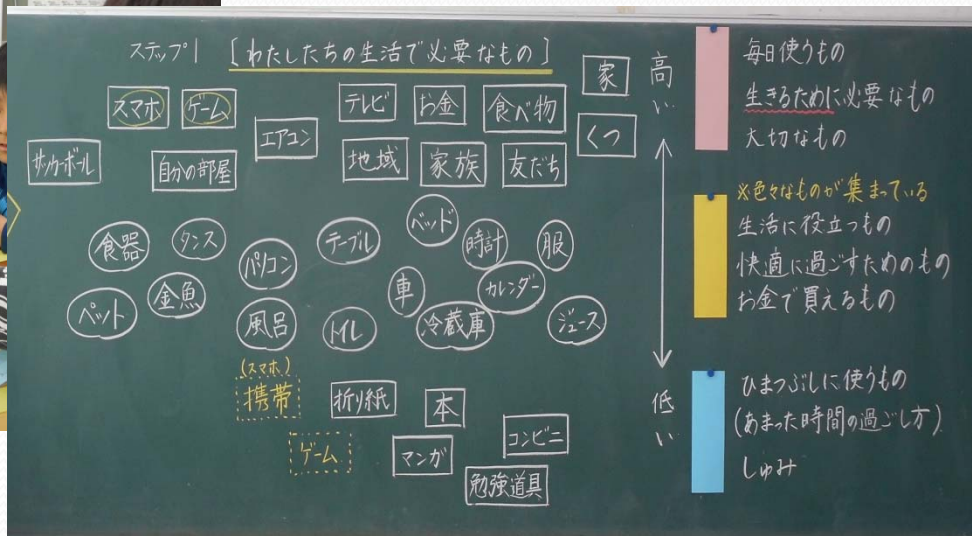 ステップ1 [わたしたちの生活で必要なもの]
家
高い
スマホ ゲーム テレビ お金 食べ物
くつ
サッカーボール 自分の部屋 エアコン 地域 家族 友だち
食器 タンス パソコン テーブル ベッド 時計 服
ペット 金魚 風呂 トイレ 車 冷蔵庫 カレンダー ジュース
(スマホ)
携帯 折り紙 本
低い
ゲーム マンガ コンビニ
勉強道具
毎日使うもの
生きるために必要なもの
大切なもの
※色々なものが集まっている
生活に役立つもの
快適に過ごすためのもの
お金で買えるもの
ひまつぶしに使うもの
(あまった時間の過ごし方)
しゅみ